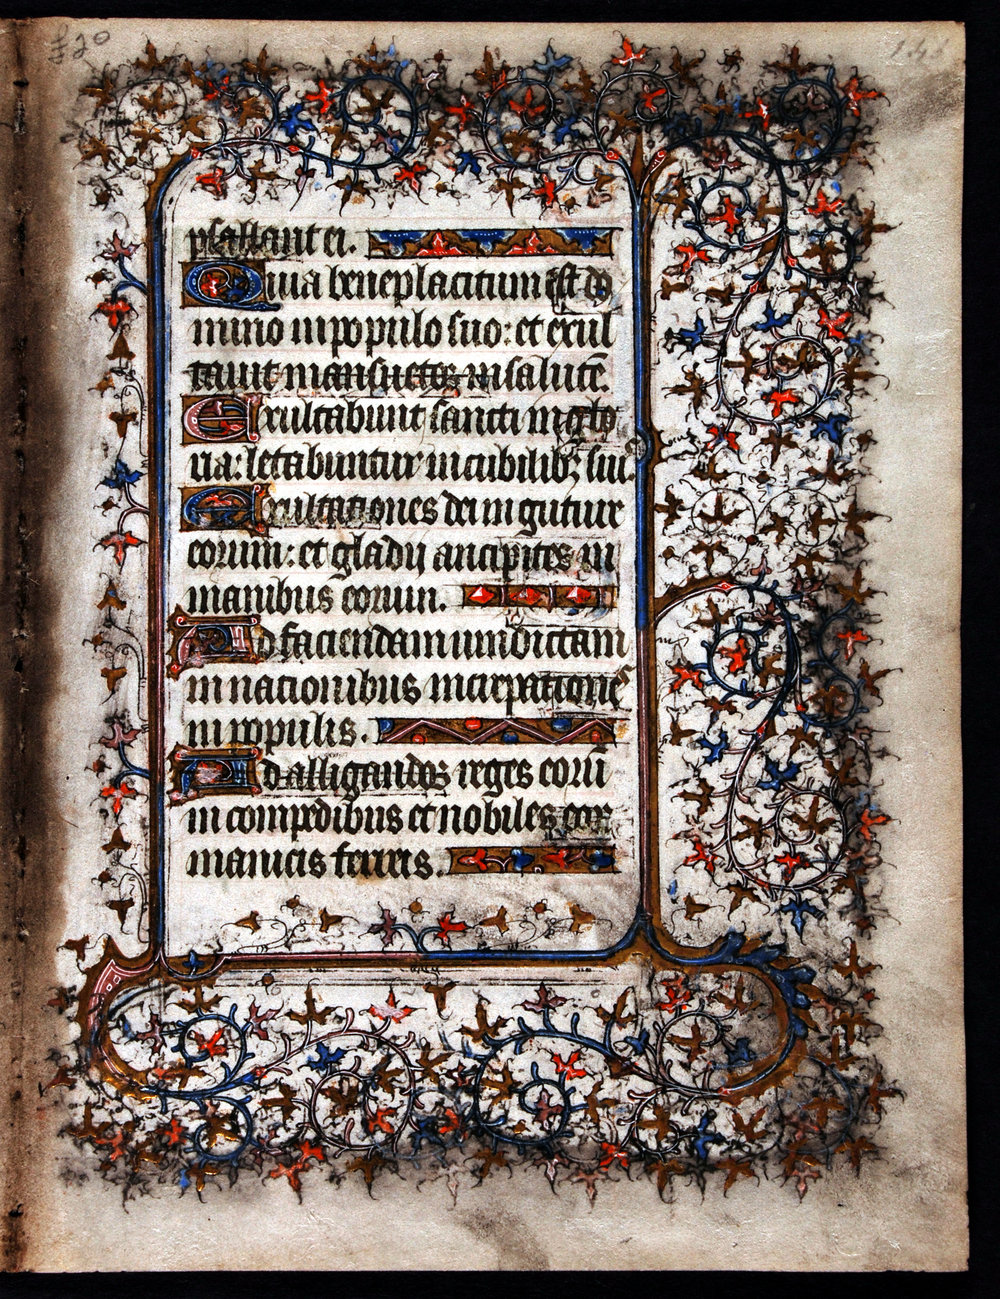 £20
psallant ei.
Quia beneplacitum est do
mino in populo suo: et exul
tavit mansuetos in salutē.
Exultabunt sancti in glo
ria: letabuntur in cubilibꝫ suis.
Exultationes dei in guttur
eorum: et gladii ancipites in
manibus eorum.
Ad faciendam vindictam
in nationibus increpationes
in populis.
Ad alligandos reges eorū
in compedibus et nobiles eor
manicis ferreis.